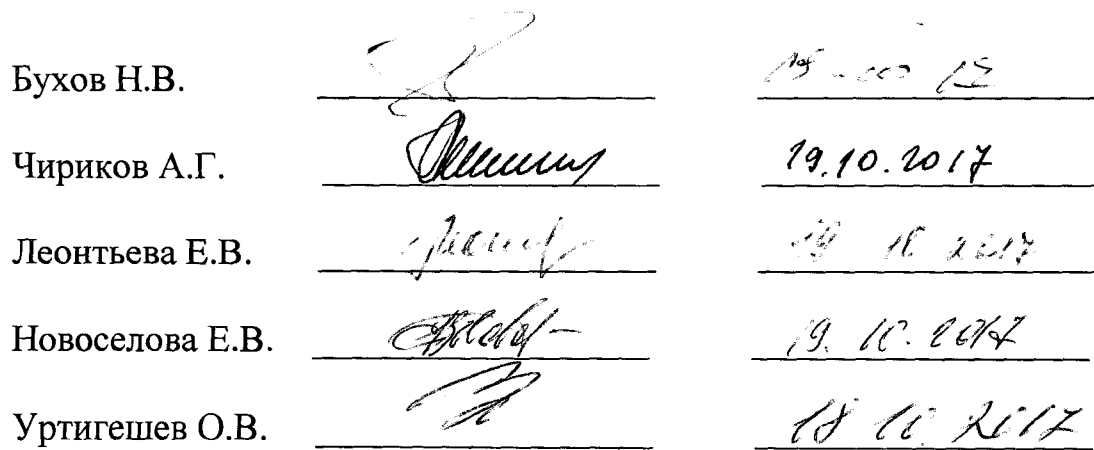 Бухов Н.В.
Чириков А.Г. 19.10.2017
Леонтьева Е.В. 19 10 2017
Новоселова Е.В. 19.10.2017
Уртигешев О.В. 18 10. 2017